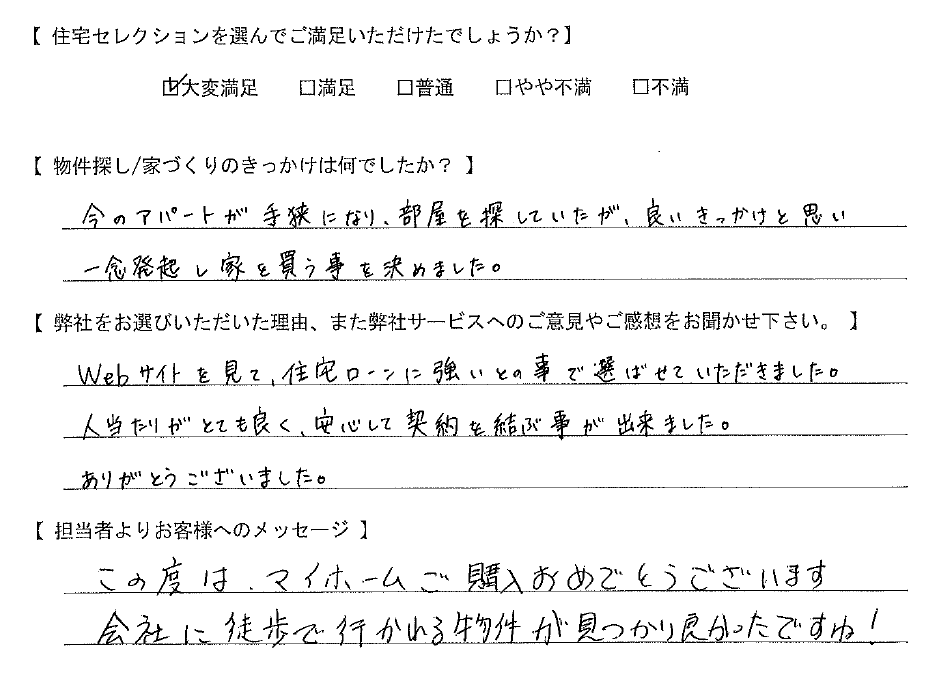 【 住宅セレクションを選んでご満足いただけたでしょうか？】
☑大変満足 □満足 □普通 □やや不満 □不満
【 物件探し/家づくりのきっかけは何でしたか？ 】
今のアパートが手狭になり、部屋を探していたが、良いきっかけと思い
一念発起し家を買う事を決めました。
【 弊社をお選びいただいた理由、また弊社サービスへのご意見やご感想をお聞かせ下さい。 】
Webサイトを見て、住宅ローンに強いとの事で選ばせていただきました。
人当たりがとても良く、安心して契約を結ぶ事が出来ました。
ありがとうございました。
【 担当者よりお客様へのメッセージ 】
この度は、マイホームご購入おめでとうございます
会社に徒歩で行かれる物件が見つかり良かったですね！